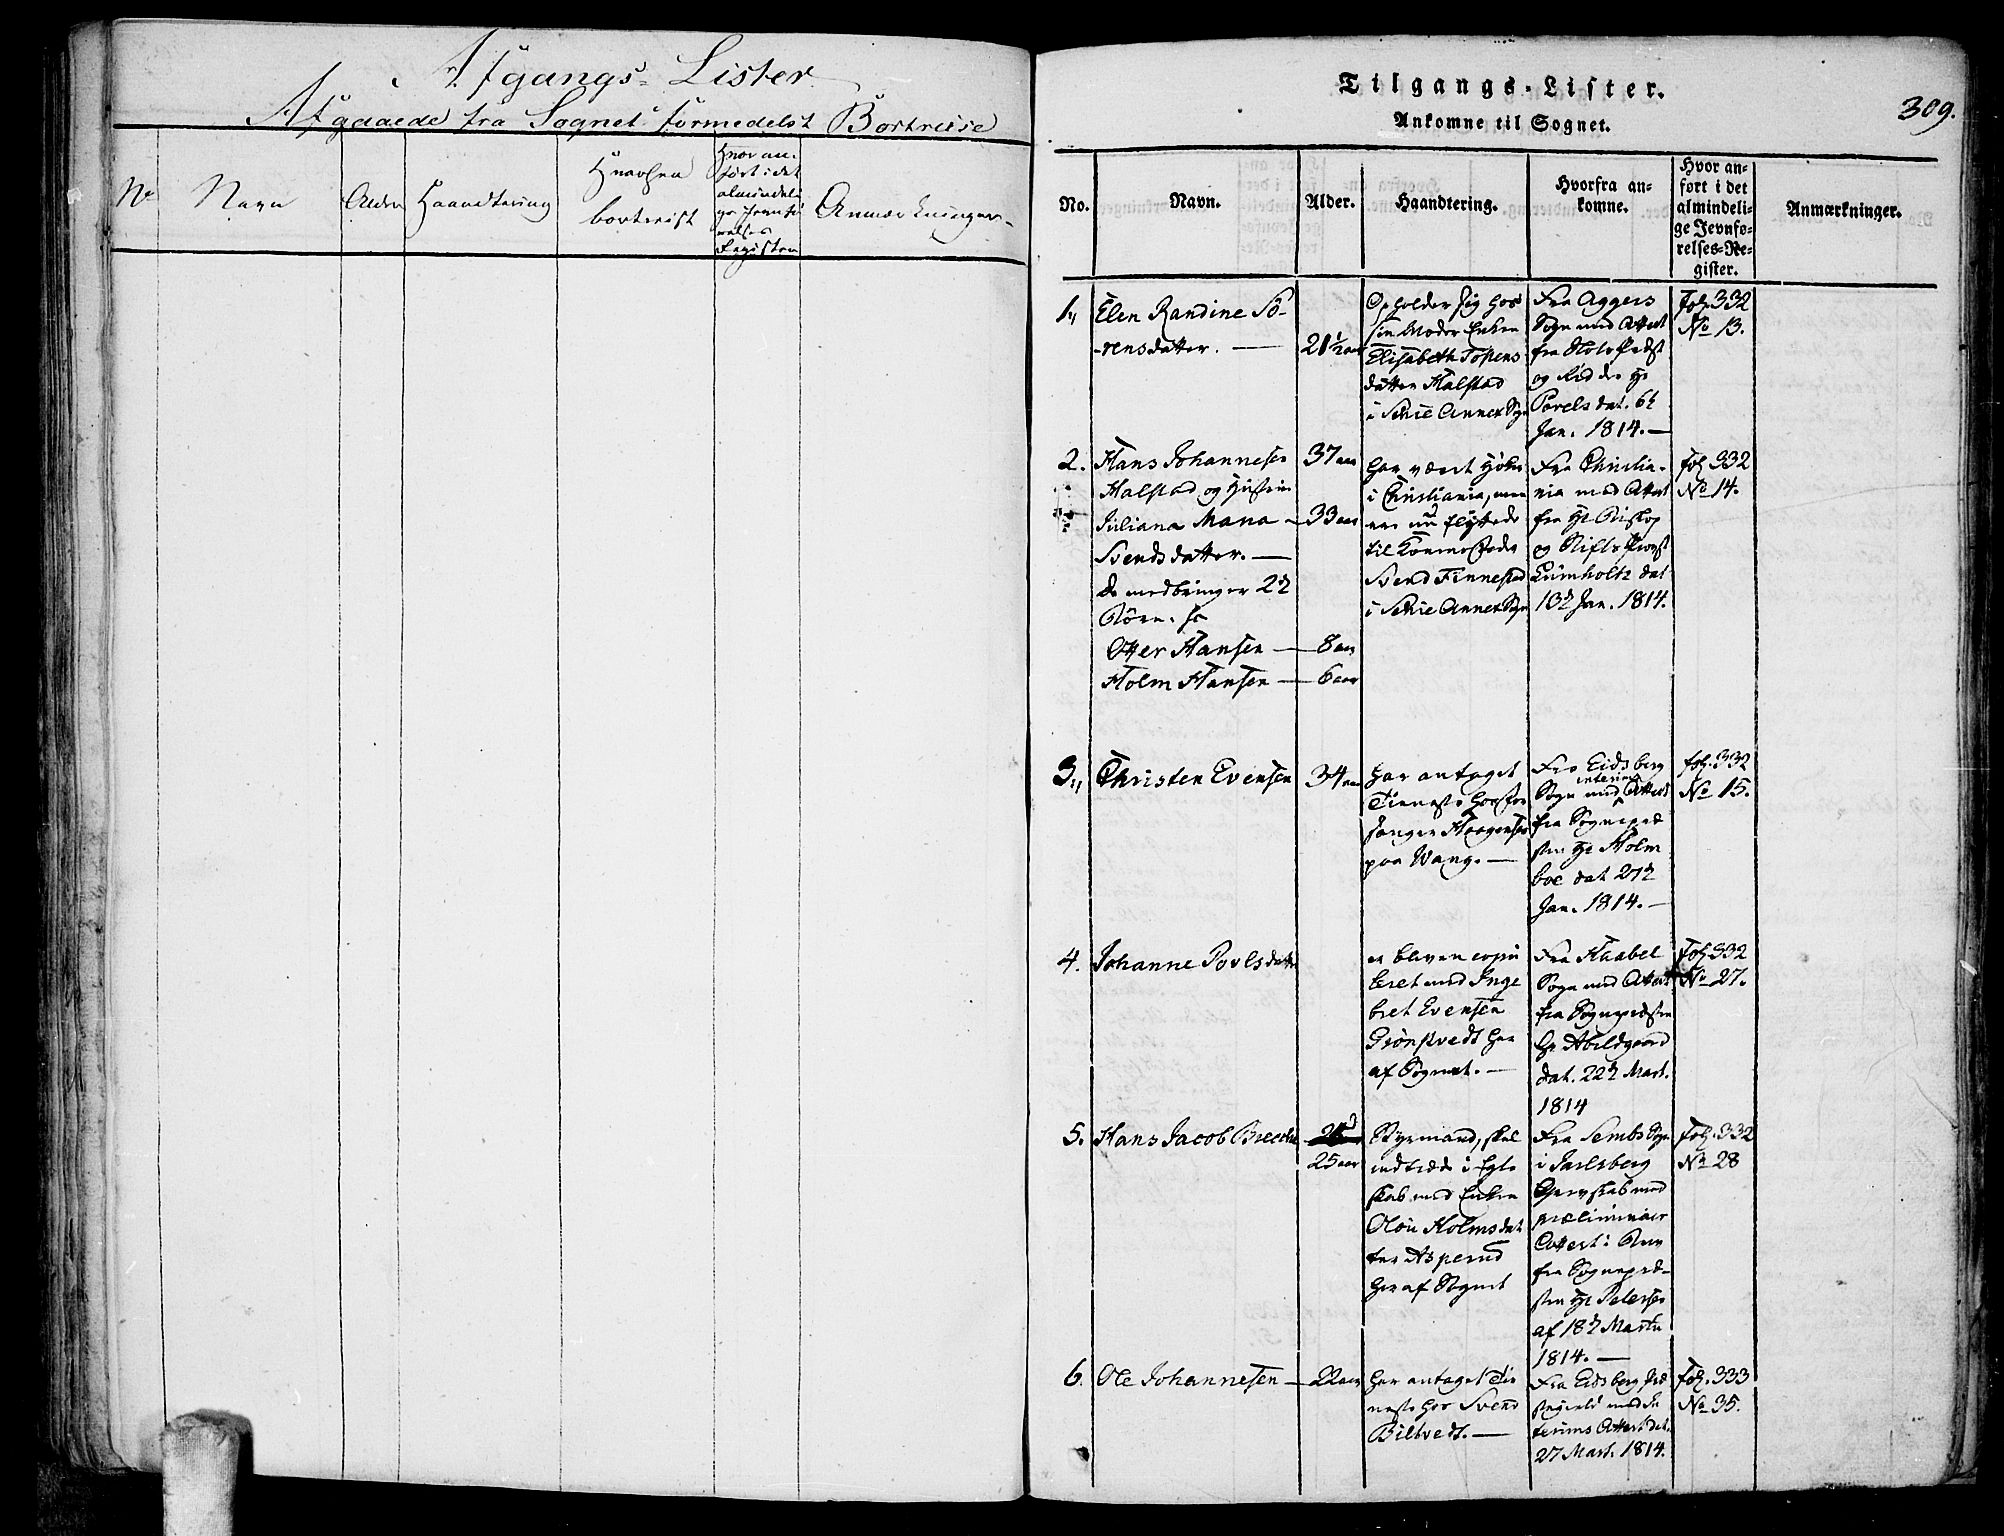 Afgangs-Lister
Afgaaede fra Sognet formedelst Bortreise
No
Navn
Alder
Haandtering
Hvorhen
bortreist
Hvor an-
ført i det
almindeli
ge Jevnfø
relses
Register
Anmærkninger
Tilgangs-Lister.
309.
Ankomne til Sognet.
No.
Navn.
Alder.
Haandtering.
Hvorfra an-
komne.
Hvor an-
ført i det
almindeli-
ge Jevnfø-
relses-Re-
gister.
Anmærkninger.
1,,
Elen Randine Sö-
-rensdatter. —
21½ aar
Opholder sig hos
sin Moder Enken
Elisabeth
datter Halstad
i Annex Sogn
Fra Aggers
Sogn med Attest
fra
og Ridder Hr
dat. 6t
Jan. 1814. —
fol. 332
No 13.
2.
Hans Johannesen
Halstad og Hustrue
Juliana Maria
Svendsdatter. —
De medbringer 2de
Börn.
Otter Hansen —
Holm Hansen —
37 aar
33 aar
8 aar
6 aar
har været
i Christiania, men
nu flyttede
til
Svend Finnestad
i Annex Sogn
Fra Christia-
nia med Attest
fra Hr Biskop
og Stiftsprovst
Lumholtz dat
13d Jan. 1814.
fol 332
No 14.
3,,
Christen Evensen
34 aar
har antaget
Tieneste hos For
Haagensen
paa Wang. —
Fra Eidsberg
interims
Sogn med Attest
fra Sognepræ
sten Hr Holm
boe dat 27d
Jan. 1814. —
fol. 332
No 15.
4.
Johanne Povlsdatter
er bleven copu
leret med Inge
bret Evensen
Grönsvedt her
af Sognet. —
Fra Haabel
Sogn med Attest
fra Sognepræsten
Hr Abildgaard
dat. 22d Mart.
1814
fol 332
No 27.
5.
Hans Jacob
25 aar
Styrmand, skal
indtræde i Egte
skab med Enken
Holmsdat
ter Asperud
her af Sognet
Fra Sembs Sogn
i Jarlsberg
Grevskab med
præliminair
Attest
fra Sognepræ-
sten Hr Petersen
af 18d Martii
1814. —
fol. 332
No 28
6.
Ole Johannesen —
22 aar
har antaget Tie
neste hos Svend
Biltvedt. —
Fra Eidsberg Præ
stegield med In
terims Attest dat.
27 Mart. 1814.
fol. 333
No 35.